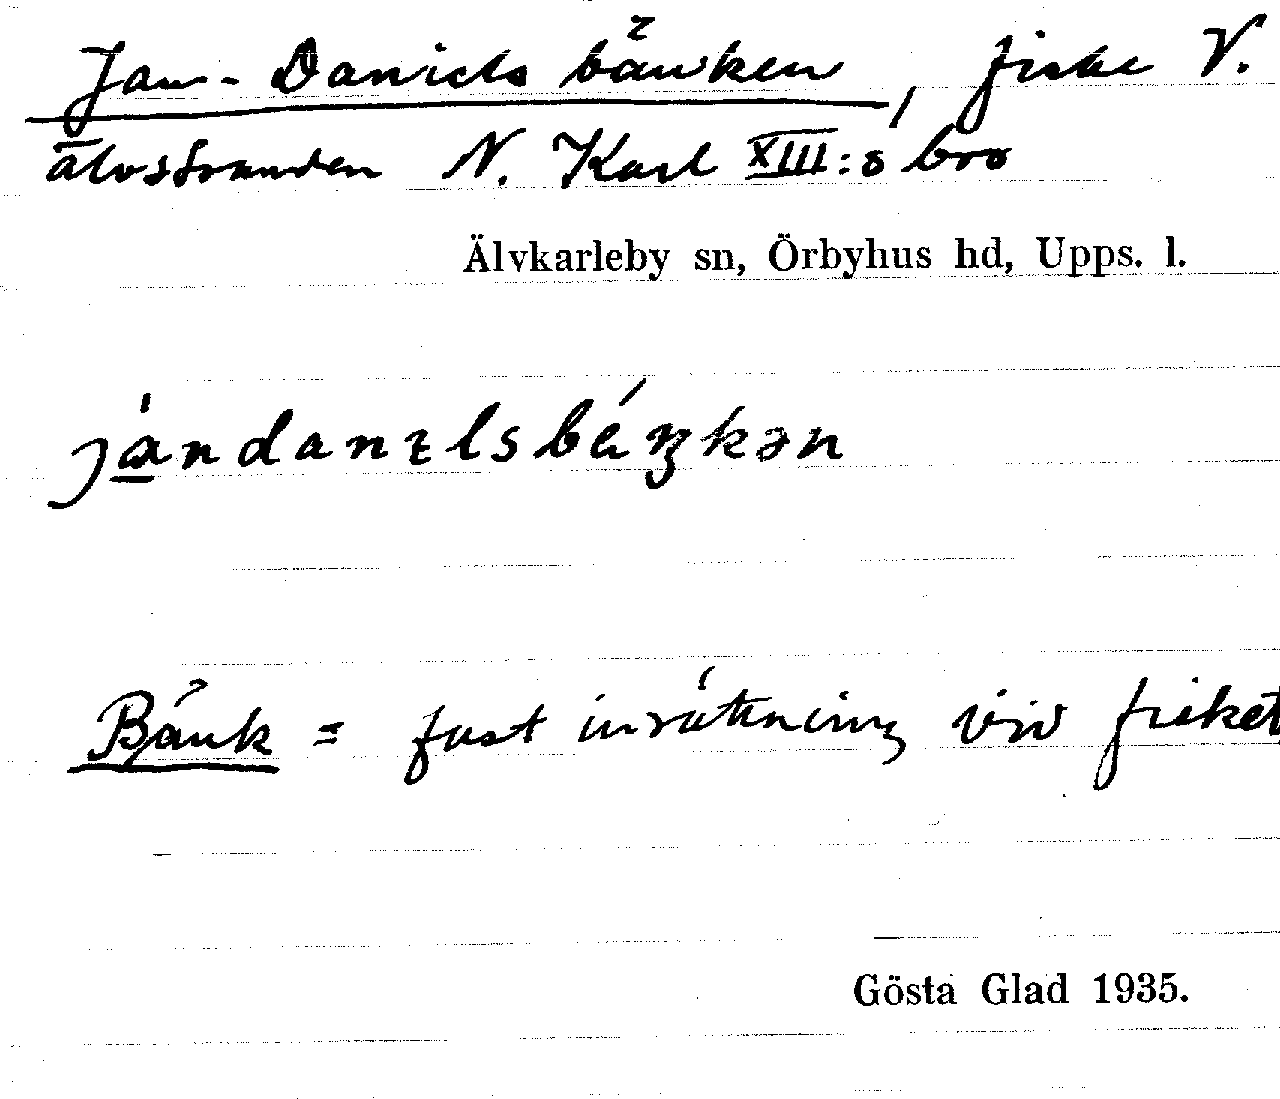 Jan-Daniels bänken, fiske V.
älvstranden N. Karl XIII:s bro
Älvkarleby sn, Örbyhus hd, Upps. l.
jàndanɪlsbéŋkən
Bänk = fast inrättning vid fisket
Gösta Glad 1935.